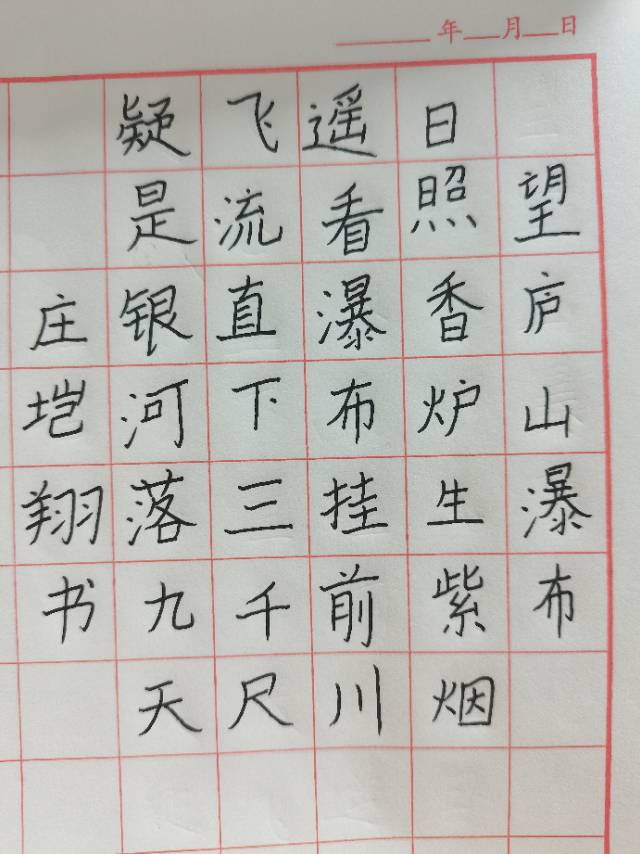 年 月 日
望庐山瀑布
日照香炉生紫烟
遥看瀑布挂前川
飞流直下三千尺
疑是银河落九天
庄垲翔书